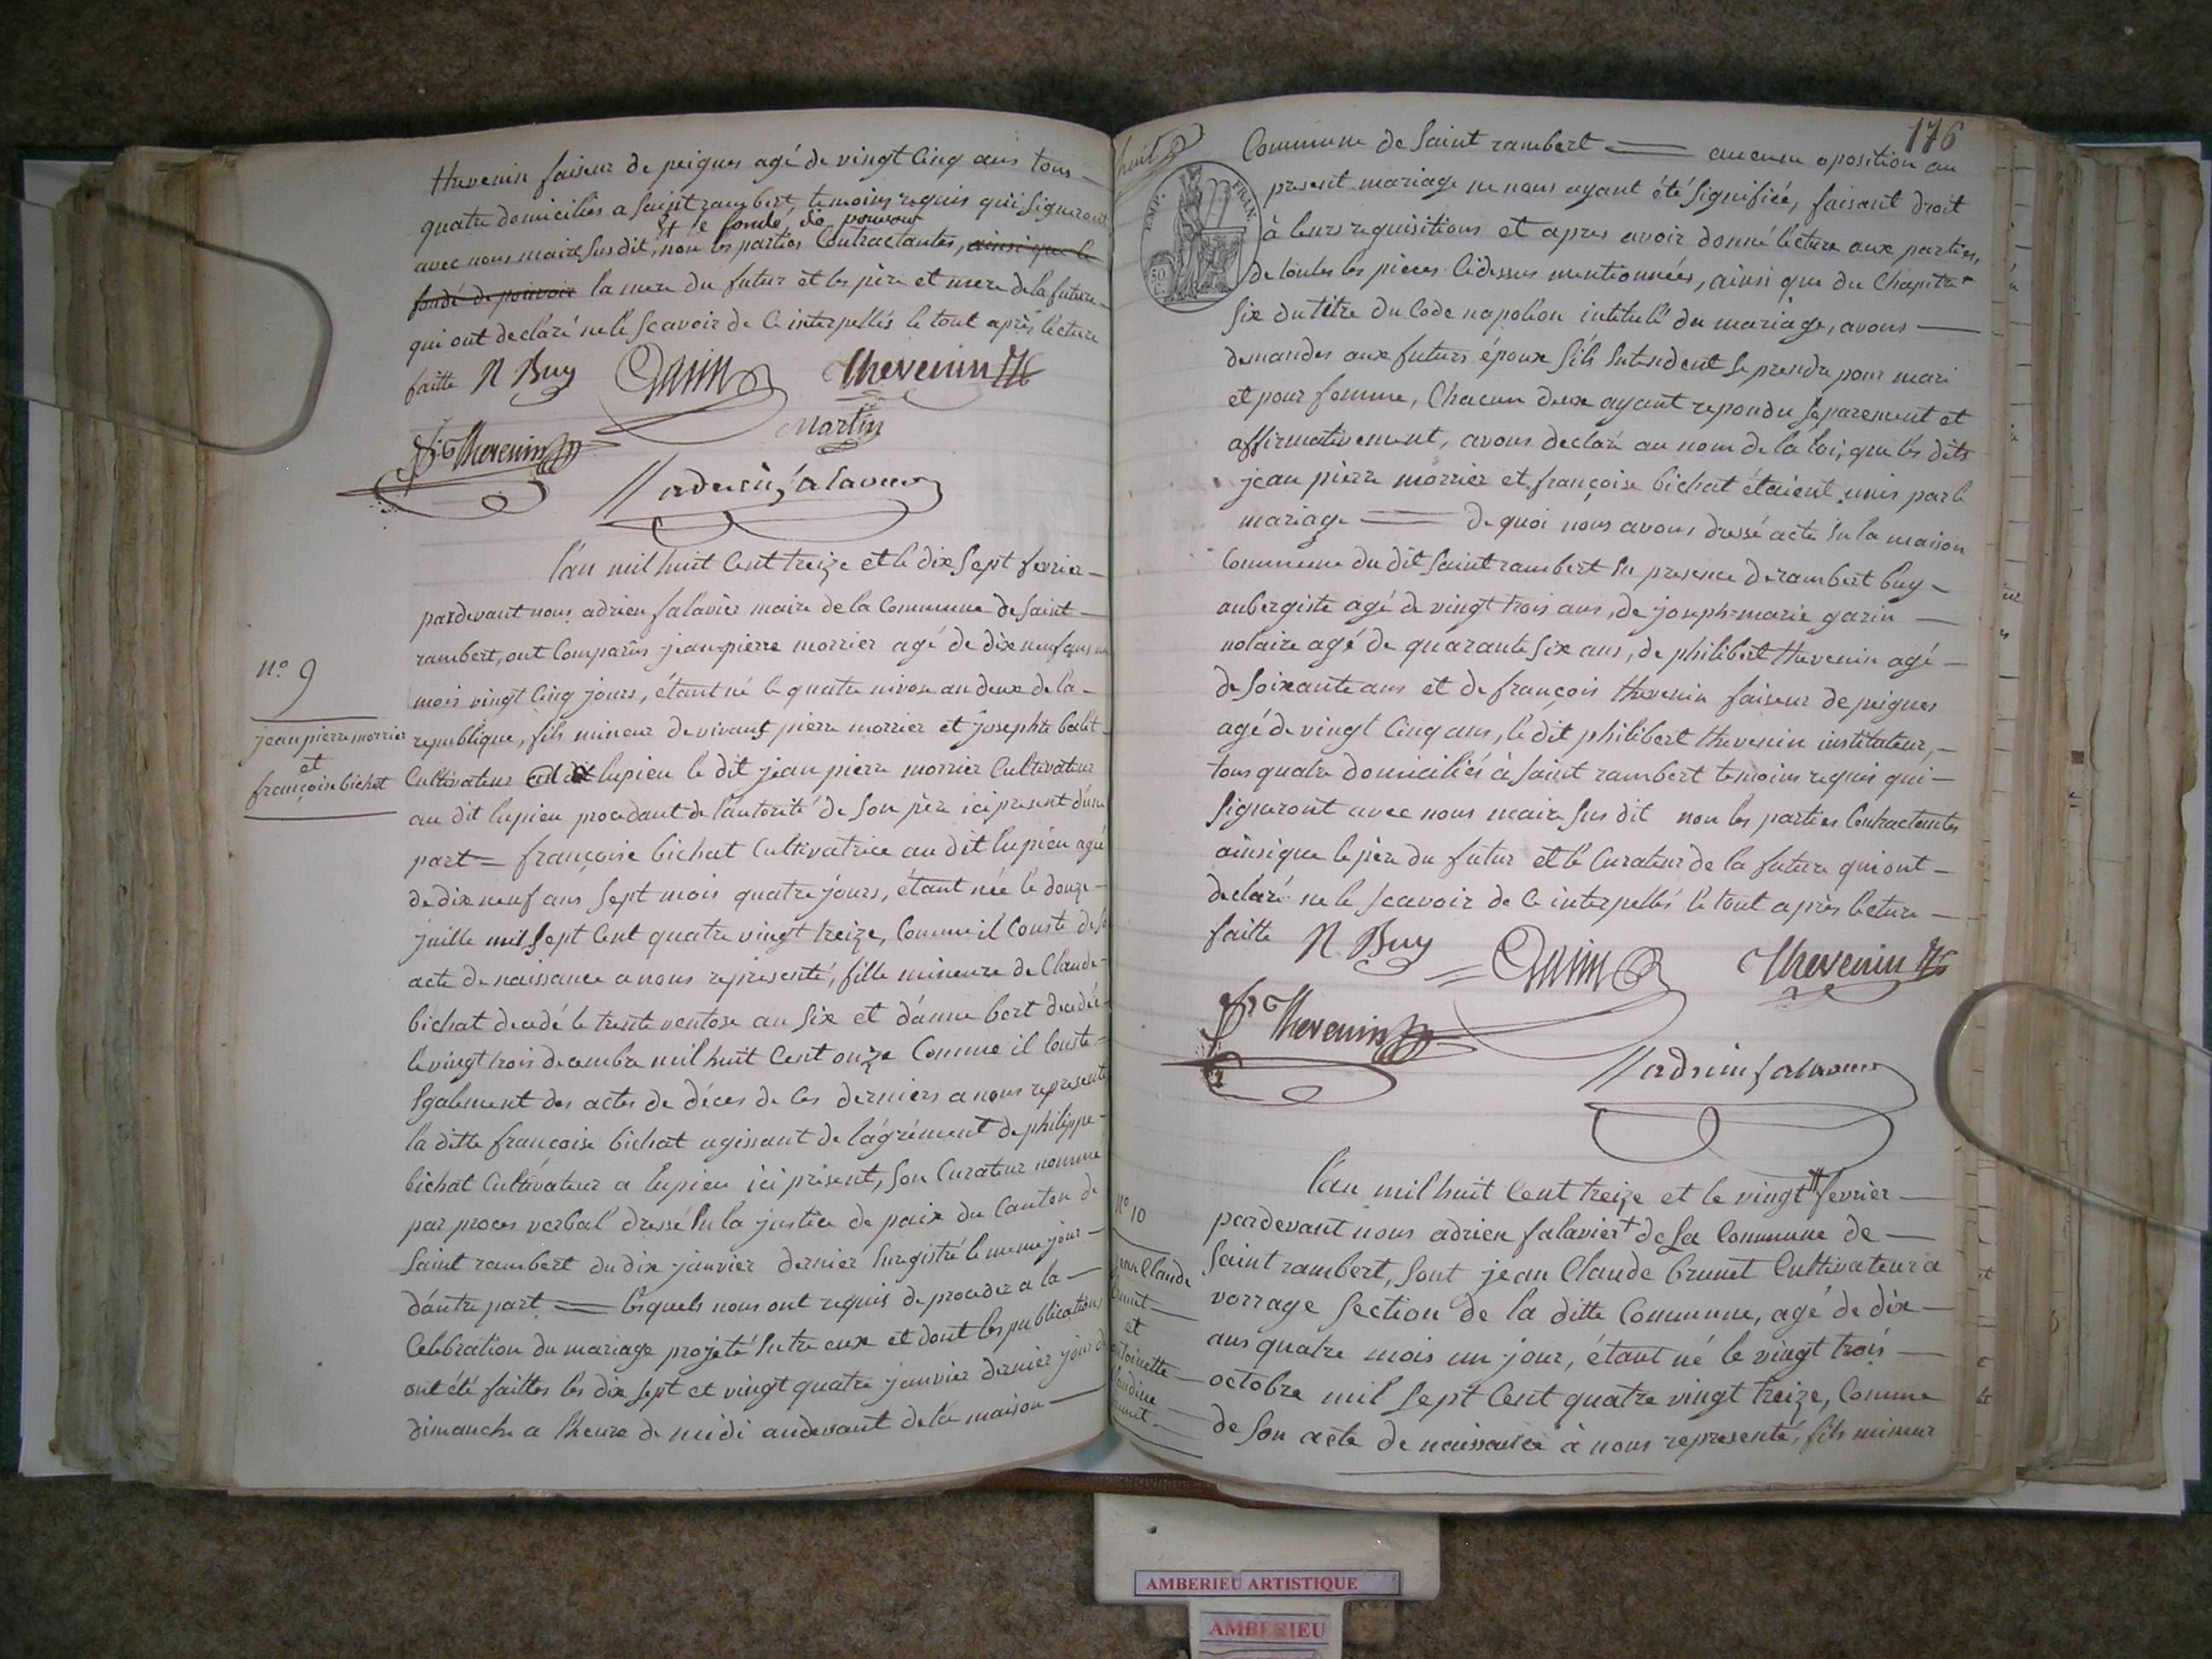 thevenin faiseur de peignes agé de vingt cinq ans tous
quatre domiciliés a saint rambert, temoins requis qui signeront
et le fondé de pouvoir
avec nous maire susdit, non les parties contractantes, ainsi que le
fondé de pouvoir la mere du futur et les père et mere de la future
qui ont declaré ne le scavoir de ce interpellés le tout après lecture
faitte R Buy Garin Thevenin
Martin
fs. Thevenin
adrien falavier
l'an mil huit cent treize et le dix sept fevrier
pardevant nous adrien falavier maire de la Commune de saint
rambert, ont comparus jean-pierre morrier agé de dix neuf ans un
mois vingt cinq jours, étant né le quatre nivose an deux de la
republique, fils mineur de vivant pierre morrier et josephte
Cultivateur lupieu le dit jean pierre morrier Cultivateur
au dit lupieu procedant de l'autorité de son père ici present d'une
part = françoise bichat Cultivatrice au dit lupieu agée
de dix neuf ans sept mois quatre jours, étant née le douze
juille mil sept cent quatre vingt treize, comme il conste de son
acte de naissance a nous representé, fille mineure de Claude
bichat decedé le trente ventose an six et d'anne bort decedée
le vingt trois decembre mil huit cent onze comme il conste
egalement des actes de déces de ces derniers a nous representé
la ditte francoise bichat agissant de l'agrément de philippe
bichat Cultivateur a lupieu ici présent, son Curateur nommé
par proces verbal dressé en la justice de paix du Canton de
saint rambert du dix janvier dernier enregistré le meme jour
d'autre part = lesquels nous ont requis de proceder a la
Celebration du mariage projeté entre eux et dont les publications
ont été faittes les dix sept et vingt quatre janvier dernier jour de
dimanche a l'heure de midi audevant de la maison
n.º 9
jean pierre morrier
et
françoise bichat
huit
176
EMP. FRAN.
50 C.
Commune de saint rambert = aucune oposition au
present mariage ne nous ayant été signifiée, faisant droit
à leurs requisitions et apres avoir donné lecture aux parties,
de toutes les pieces cidessus mentionnées, ainsi que du Chapitre
six du titre du Code napoleon intitulé du mariage, avons
demandes aux futurs époux s'ils entendent se prendre pour mari
et pour femme, Chacun deux ayant repondu separement et
affirmativement, avons declaré au nom de la loi, que les dits
jean pierre morrier et françoise bichat étaient unis par le
mariage = de quoi nous avons dressé acte en la maison
Commune du dit saint rambert en presence de rambert buy
aubergiste agé de vingt trois ans, de joseph-marie garin
notaire agé de quarante six ans, de philibert thevenin agé
de soixante ans et de françois thevenin faiseur de peignes
agé de vingt cinq ans, le dit philibert thevenin instituteur,
tous quatre domiciliés à saint rambert temoins requis qui
signeront avec nous maire sus dit non les parties contractantes
ainsi que le père du futur et le Curateur de la future qui ont
declaré ne le scavoir de ce interpellés le tout après lecture
faitte R Buy Garin Thevenin
fs. Thevenin
adrien falavier
l'an mil huit cent treize et le vingt fevrier
pardevant nous adrien falavier de la Commune de
saint rambert, sont jean Claude brunet Cultivateur a
vorrage section de la ditte Commune, agé de dix
ans quatre mois un jour, étant né le vingt trois
octobre mil sept cent quatre vingt treize, comme
de son acte de naissance à nous representé, fils mineur
nº 10
jean Claude
brunet
et
AMBERIEU ARTISTIQUE
AMBERIEU